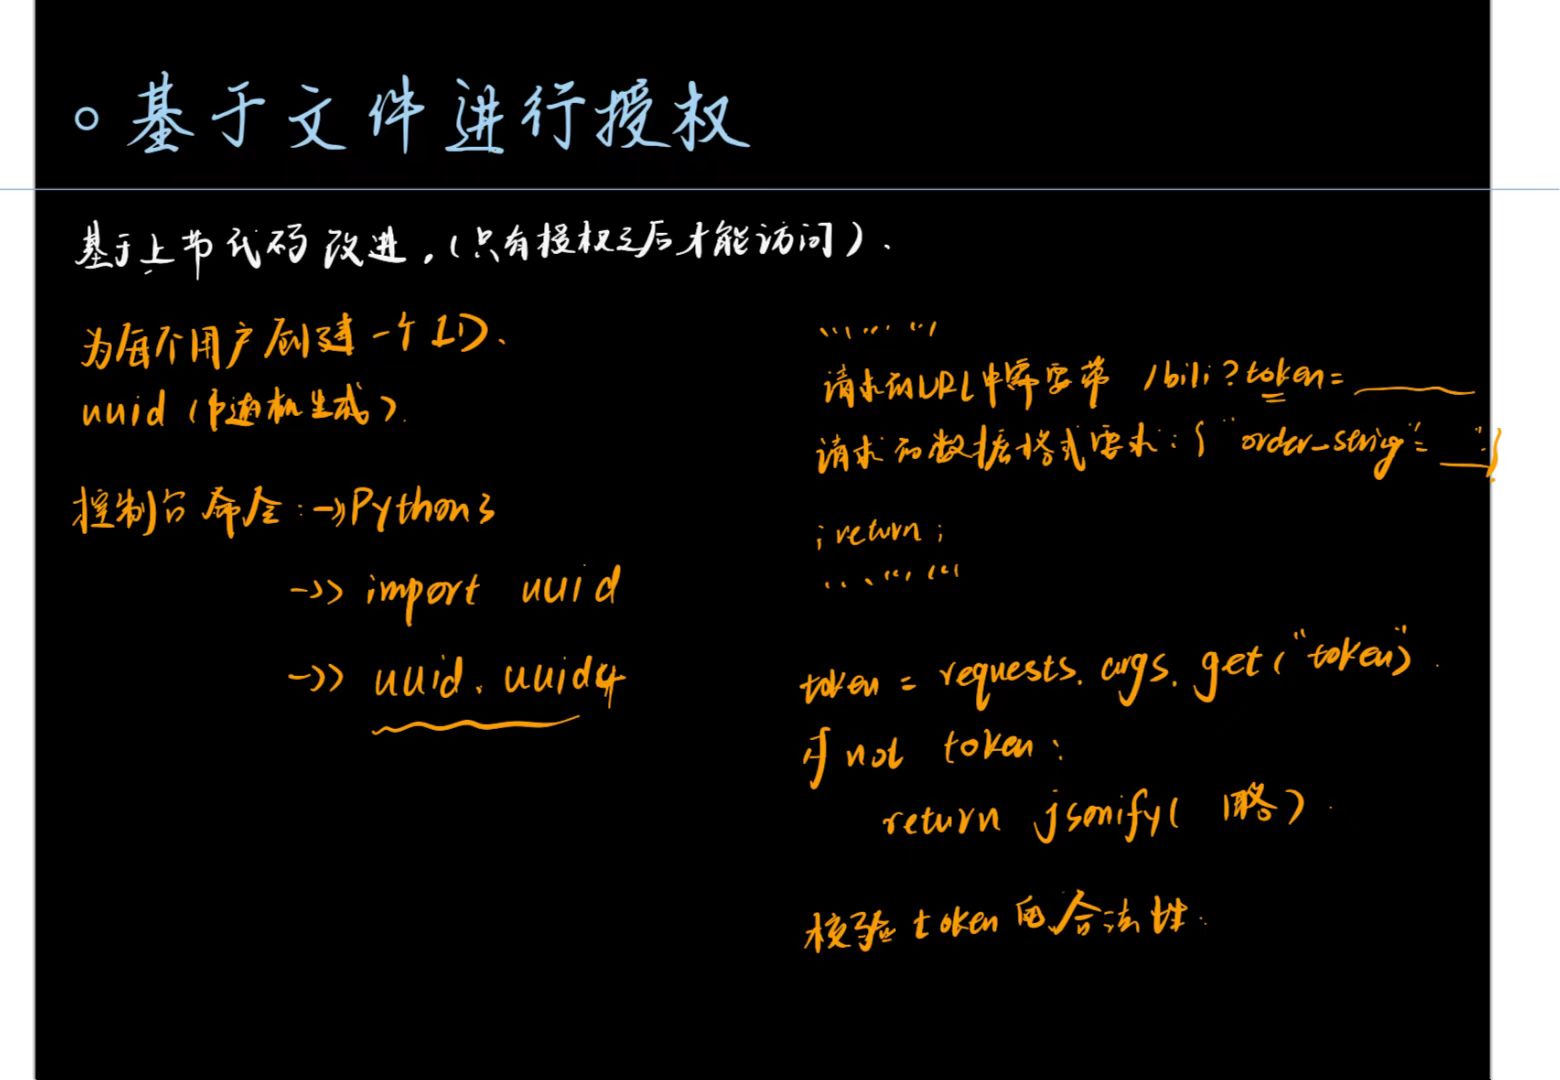 基于文件进行授权
基于上节代码改进，(只有授权之后才能访问).
为每个用户创建一个ID.
uuid(随机生成).
控制台命令:->>Python3
->> import uuid
->> uuid.uuid4
"""
请求的URL中需要带 /bili?token=____
请求的数据格式要求:{"order_string":"__"}
;return;
"""
token = requests.args.get("token").
if not token:
return jsonify(略).
校验token的合法性.